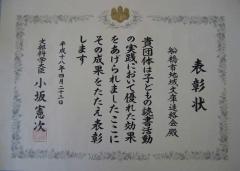 表彰状
船橋市地域文庫連絡会殿
貴団体は子どもの読書活動
の実践において優れた効果
をあげられましたここに
その成果をたたえ表彰
します
平成十八年四月二十三日
文部科学大臣 小坂憲次